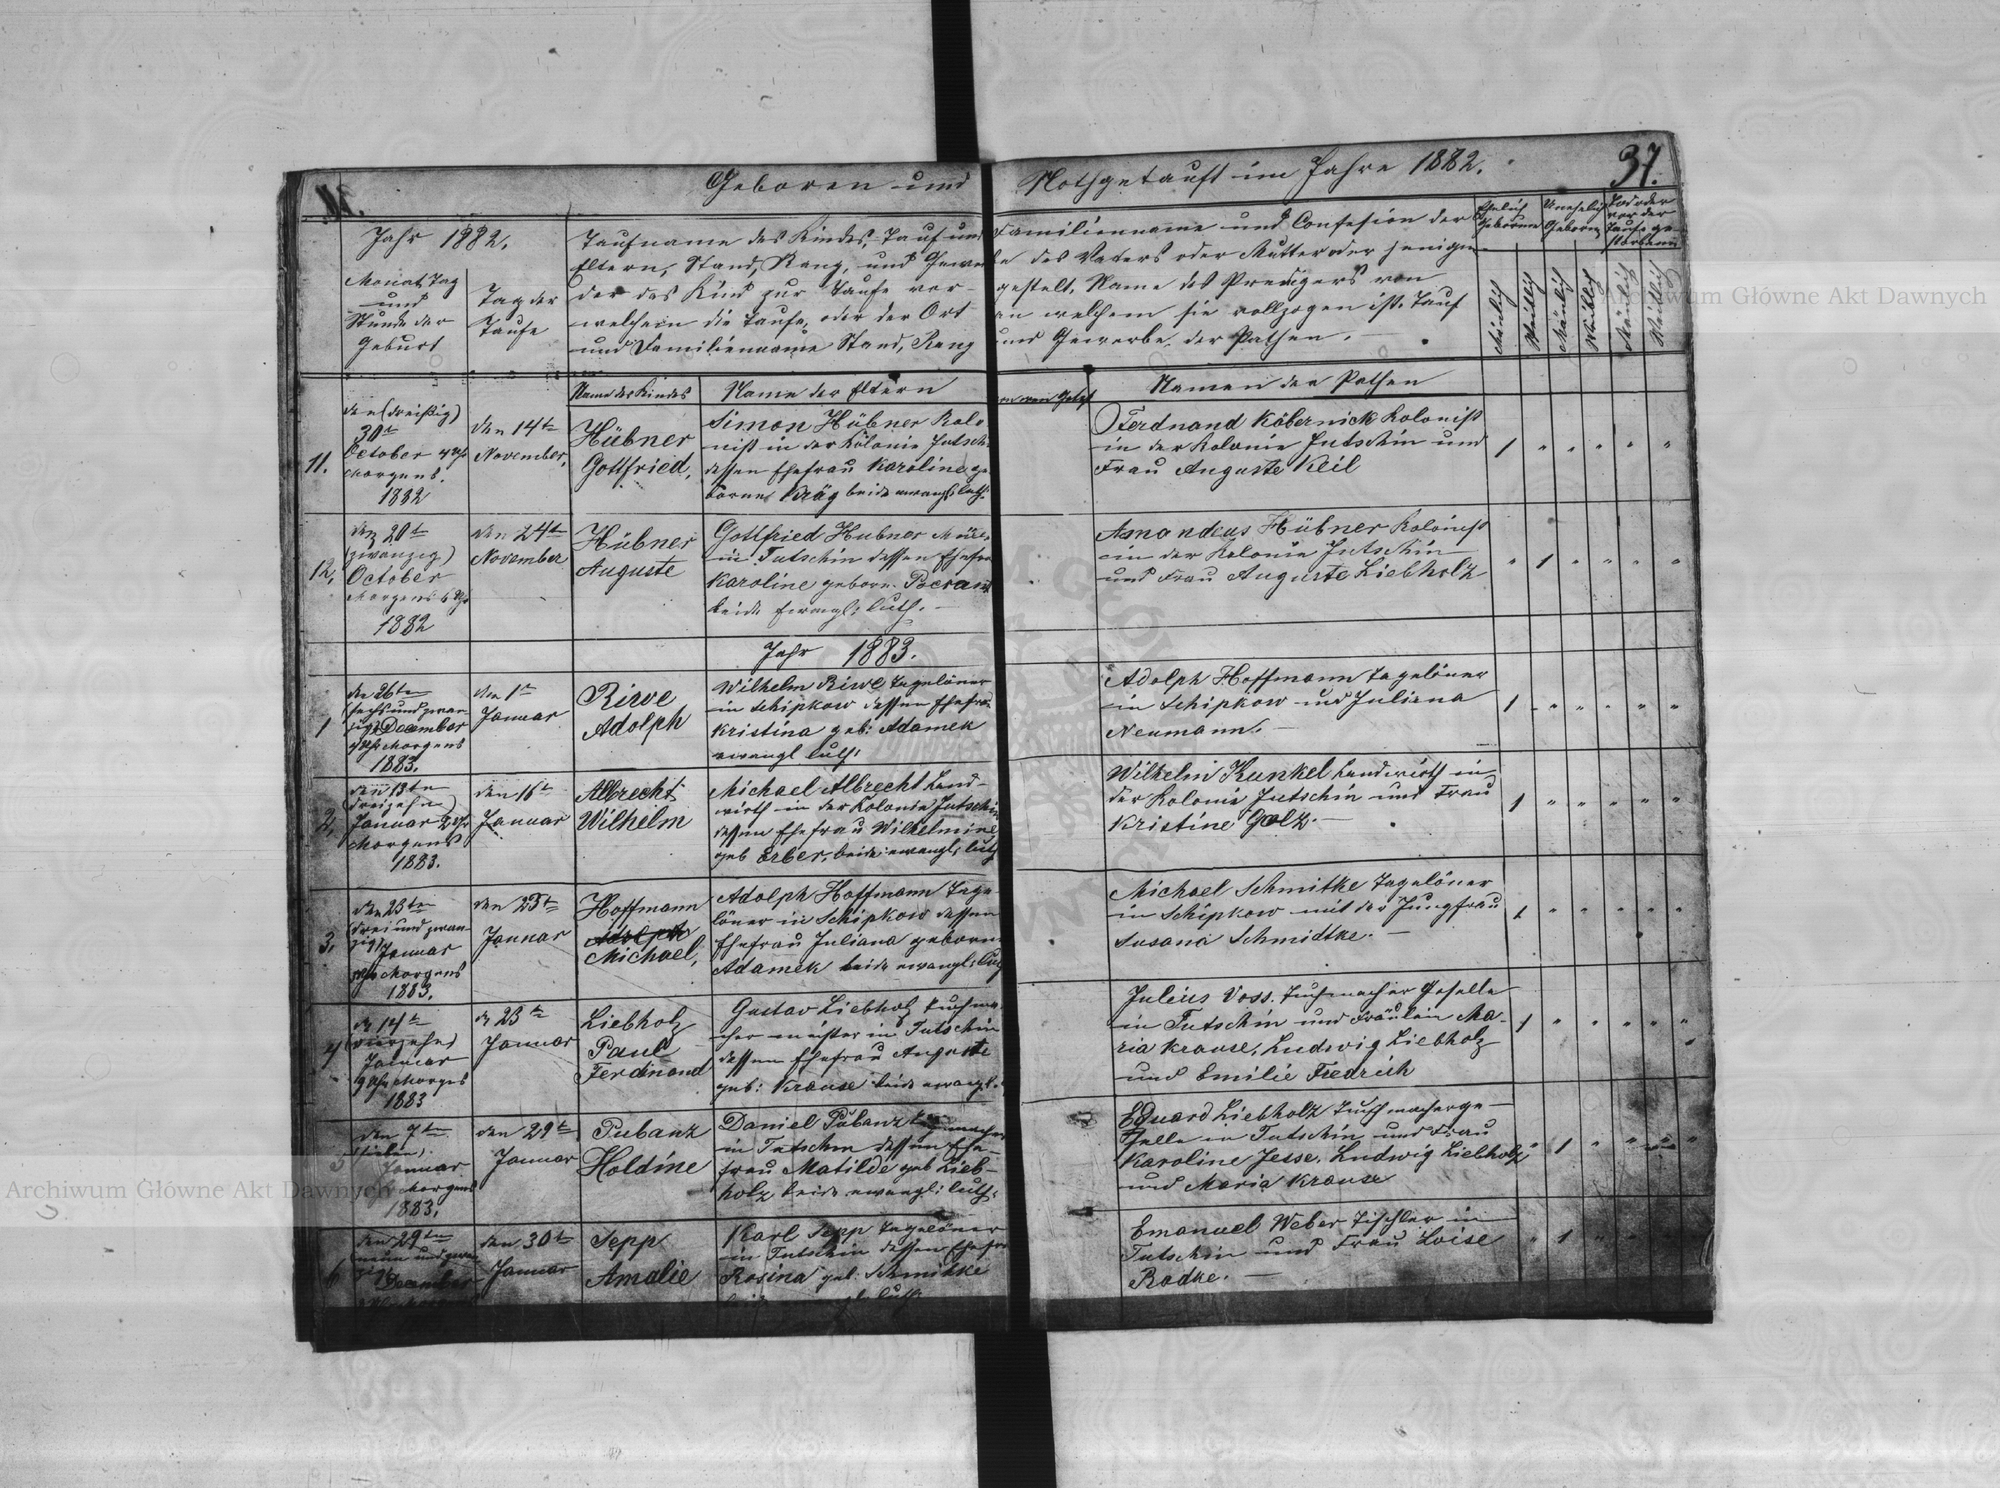 Geboren und Nothgetauft im Jahre 1882.
37.
Jahr 1882.
Monat, Tag
und
Stunde der
Geburt
Tag der
Taufe
Taufname des Kindes, Tauf und Familienname und Confesion der
Eltern, Stand, Rang, und Gewerbe des Vaters oder Mutter oder jenigen
der das Kind zur Taufe vor- gestelt, Name des Predigers von
welchem die Taufe, oder der Ort an welchem sie vollzogen ist. Tauf
und Familienname Stand, Rang und Gewerbe der Pathen.
Ehelich
Geboren
Unehelich
Geboren
Tod oder
vor der
Taufe ge-
storbenen
Mänlich
Weiblich
Mänlich
Weiblich
Mänlich
Weiblich
Name des Kindes
Name der Eltern
Namen der Pathen
11.
den (dreißig)
30ten
October 4 Uhr
Morgens.
1882
den 14ten
November,
Hübner
Gottfried,
Simon Hübner Kolo
nist in der Kolonie Jutschin
dessen Ehefrau Karoline ge
borne Kräg beide ewangl: luth.
Ferdnand Köbernick Kolonist
in der Kolonie Jutschin und
Frau Auguste Keil
1 " " " " "
12.
den 20ten
(zwanzig)
October
Morgens 6 Uhr
1882
den 24ten
November
Hübner
Auguste
Gottfried Hubner
in Tutschin dessen Ehefrau
Karoline geborn.
beide Ewangl: luth. -
Amandeus Hübner Kolonist
in der Kolonie Jutschin
und Frau Auguste Liebholz
" 1 " " " "
Jahr 1883.
1
den 26ten
sechs und zwan-
zig) December
Uhr Morgens
1883.
den 1ten
Januar
Rirve
Adolph
Wilhelm Rirve Tagelöner
in Schipkow dessen Ehefrau
Kristina geb: Adamek
ewangl luth:
Adolph Hoffmann Tagelöner
in Schipkow und Juliana
Neumann. -
1 " " " " "
2.
den 13ten
(dreizehn)
Januar 2 Uhr
Morgens
1883.
den 16ten
Januar
Albrecht
Wilhelm
Michael Albrecht Land-
wirth in der Kolonie Jutschin
dessen Ehefrau Wilhelmine
geb Erber, beide ewangl: luth
Wilhelm Kunkel Landwirth in
der Kolonie Jutschin und Frau
Kristine Golz. -
1 " " " " "
3.
den 23ten
(drei und zwan-
zig) Januar
Uhr Morgens
1883.
den 23ten
Januar
Hoffmann
Adolph
Michael,
Adolph Hoffmann Tage-
löner in Schipkow dessen
Ehefrau Juliana geborn
Adamek beide ewangl: luth
Michael Schmitke Tagelöner
in Schipkow mit der Jungfrau
Susana Schmidtke. -
1 " " " " "
4
den 14ten
(vierzehn)
Januar
9 Uhr Morges
1883
den 23ten
Januar
Liebholz
Paul
Ferdinand
Gustav Liebholz Tuchma
cher meister in Tutschin
dessen Ehefrau Auguste
geb: Krause beide ewangl.
Juleius Voss. Tuchmacher Geselle
in Tutschin und Fräulein Ma-
ria Krause, Ludwig Liebholz
und Emilie Fredrich
1 " " " " "
5
den 7ten
sieben)
Januar
Morgens
1883.
den 29ten
Januar
Pubanz
Holdine
Daniel Pubanz Tuchmacher
in Tutschin dessen Ehe-
frau Matilde geb Lieb-
holz beide ewangl: luth:
Eduard Liebholz Tuchmacherge-
selle in Tutschin und Frau
Karoline Jesse. Ludwig Liebholz
und Maria Krause
" 1 " " " "
6
den 29ten
neun und zwan
zig) December
den 30ten
Januar
Sepp
Amalie
Karl Sepp Tagelöner
in Tutschin dessen Ehefrau
Rosina geb. Schmitke
beide ewangl: luth
Emanuel Weber Tischler in
Tutschin und Frau Loise
Radke. -
" 1 "
Archiwum Główne Akt Dawnych
Archiwum Główne Akt Dawnych